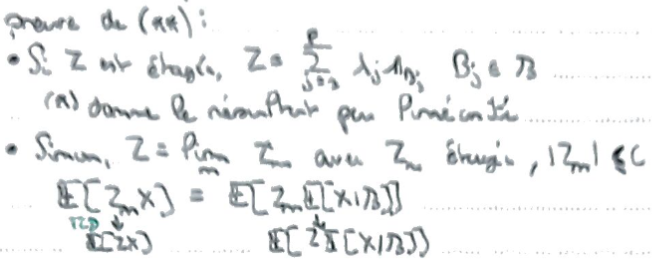 preuve de (**):
• Si Z est étagée, Z = \sum_{j=1}^{p} λ_j 1_{B_j} B_j ∈ B
(*) donne le résultat par linéarité
• Sinon, Z = lim_n Z_n avec Z_n étagée, |Z_n| ≤ C
E[Z_n X] = E[Z_n E[X|B]]
TCD ↓ ↓
E[ZX] E[Z E[X|B]]